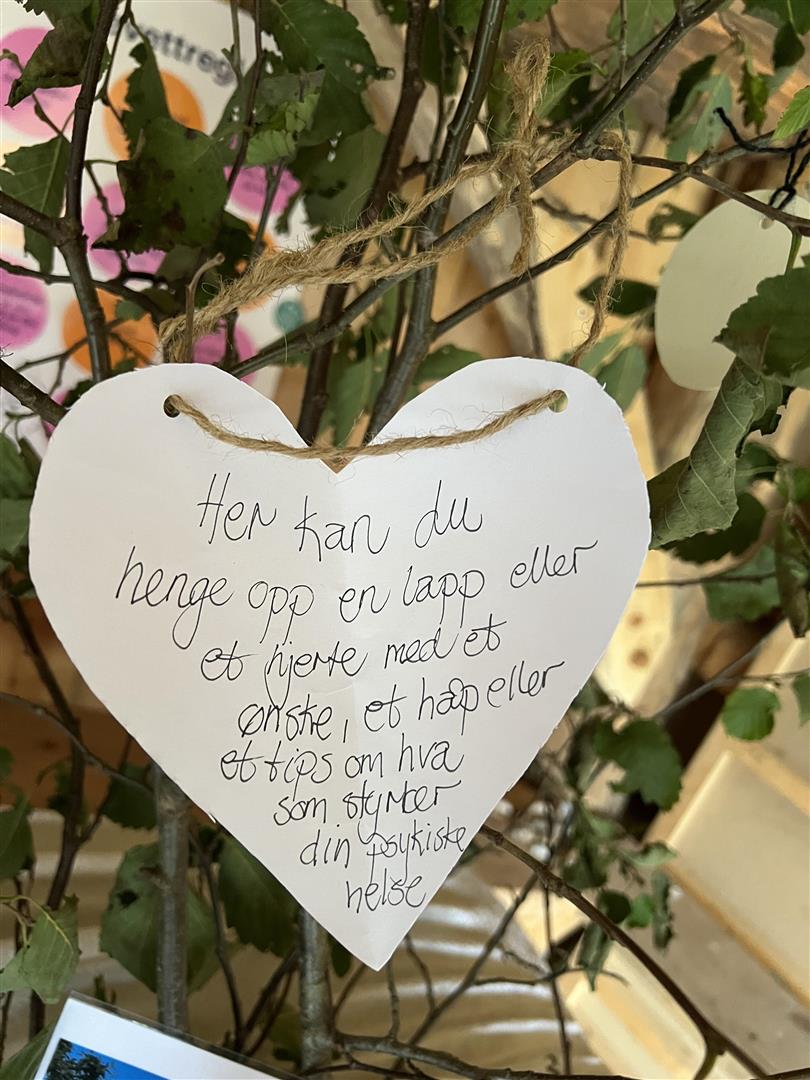 vettreg
Her kan du
henge opp en lapp eller
et hjerte med et
ønske, et håp eller
et tips om hva
som styrker
din psykiske
helse